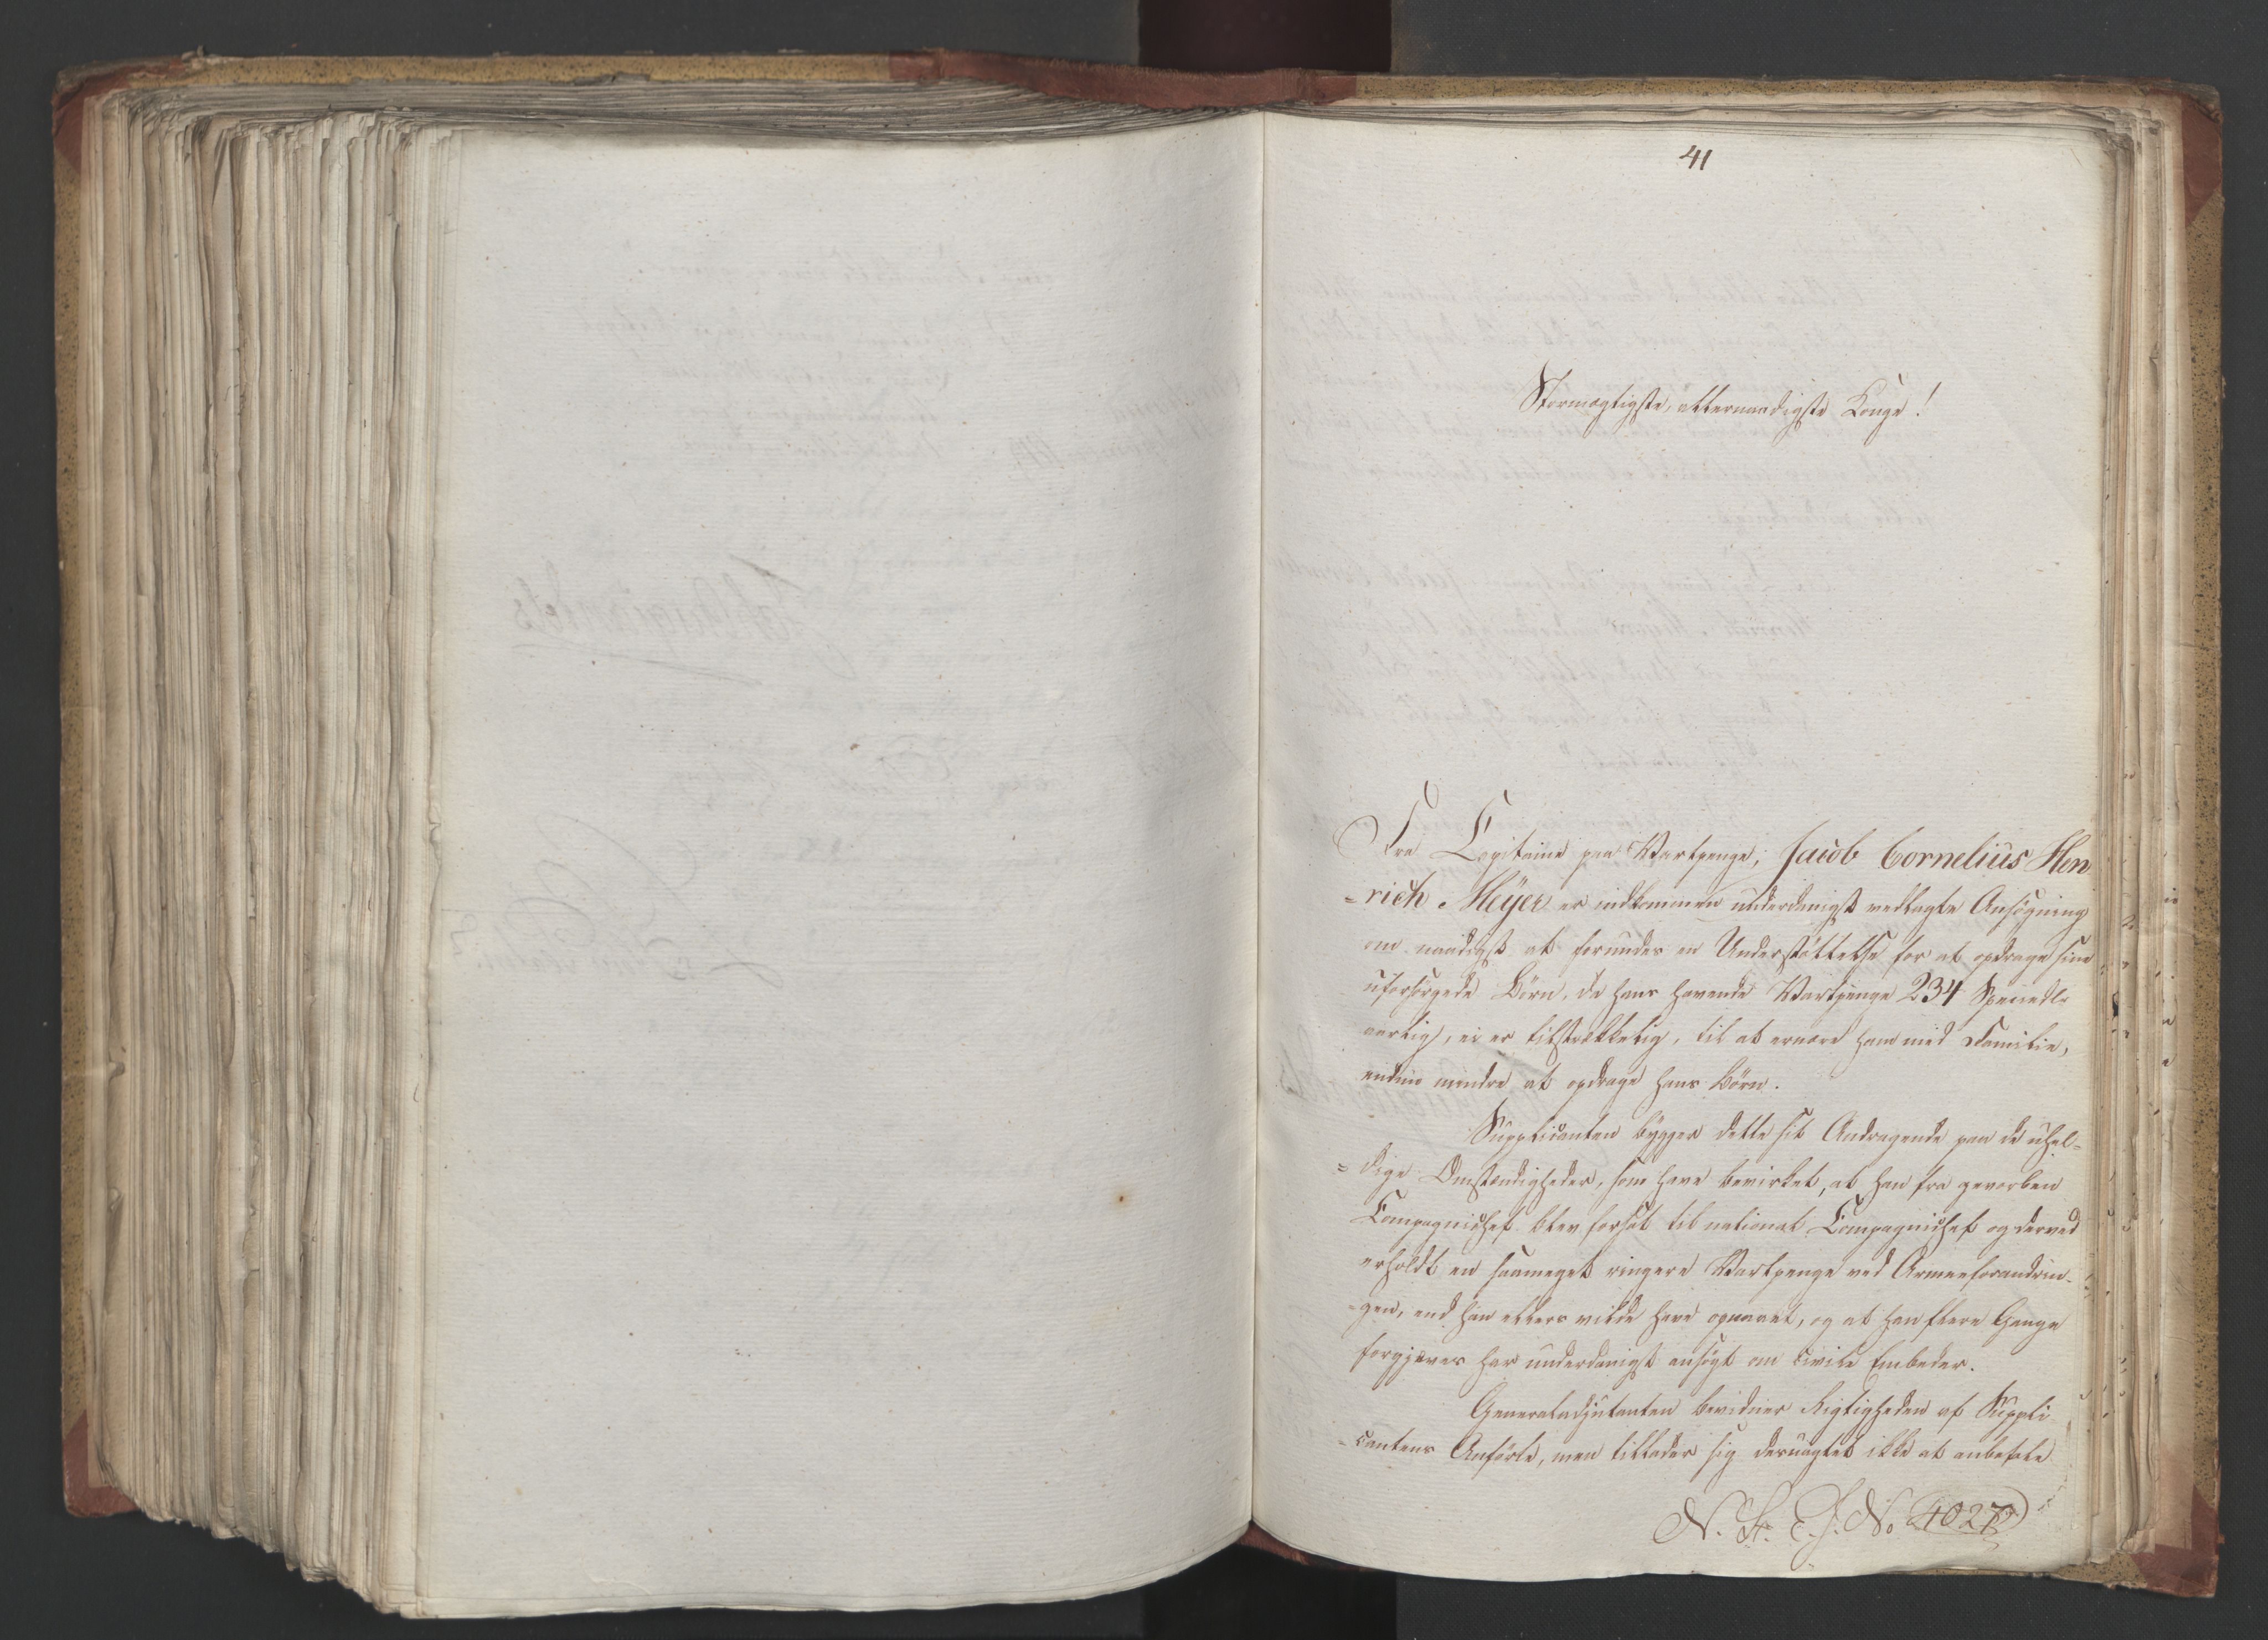 41
Stormægtigste, allernaadigste Konge!
Fra Capitaine paa Vartpenge, Jacob Cornelius Hen
=rich Meÿer er indkommen underdanigst vedlagte Ansøgning
om naadigst at forundes en Understøttelse for at opdrage sine
uforsørgede Børn, da hans havende Vartpenge 234 Speciedlr
aarlig, ei er tilstrækkelig, til at ernære ham med Familie,
endnu mindre at opdrage hans Børn.
Supplicanten bygger dette sit Andragende paa de uhel-
=dige Omstændigheder, som have bevirket, at han fra gevorben
Compagniechef blev forsat til national Compagniechef og derved
erholdt en saameget ringere Vartpenge ved Armeeforandrin-
=gen, end han ellers vilde have opnaaet, og at han flere Gange
forgjæves har underdanigst ansøgt om civile Embeder.
Generaladjutanten bevidner Rigtigheden af Suppli
=cantens Anførte, men tillader sig desuagtet ikke at anbefale
N. St. E. J. No 4027